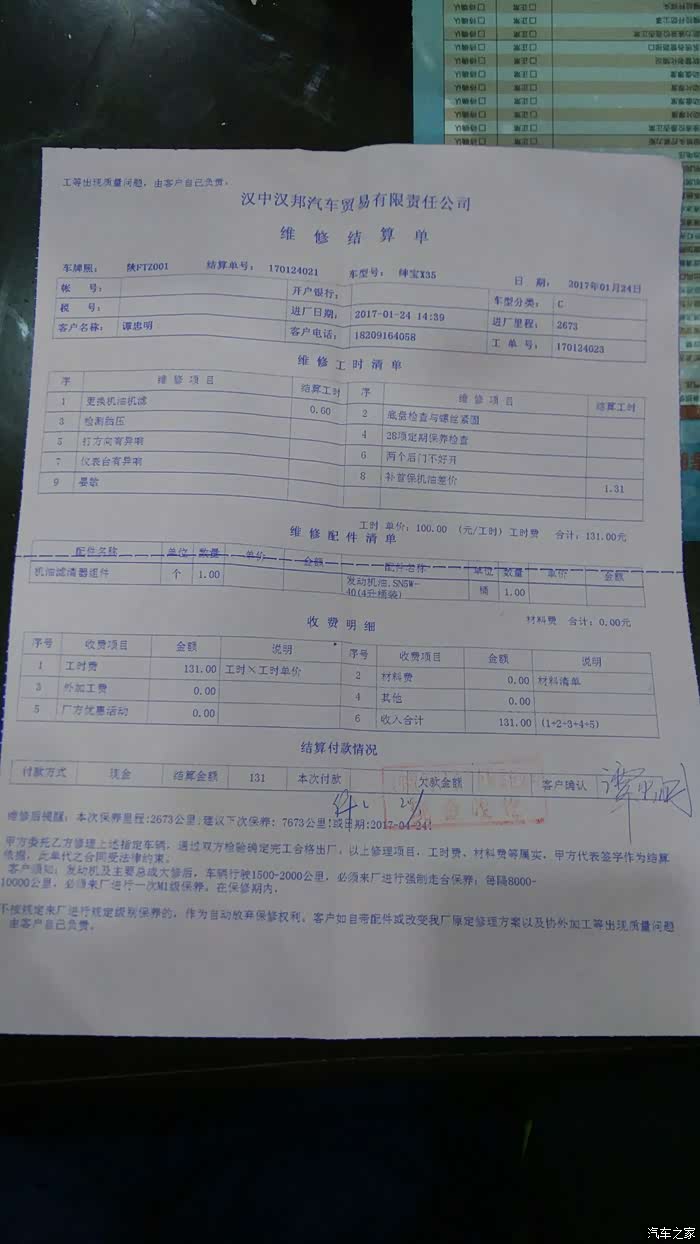 工等出现质量问题，由客户自己负责。
汉中汉邦汽车贸易有限责任公司
维 修 结 算 单
车牌照： 陕FTZ001 结算单号： 170124021 车型号： 绅宝X35 日 期： 2017年01月24日
帐 号： 开户银行： 车型分类： C
税 号： 进厂日期： 2017-01-24 14:39 进厂里程： 2673
客户名称： 谭忠明 客户电话： 18209164058 工 单 号： 170124023
维 修 工 时 清 单
序 维 修 项 目 结算工时 序 维 修 项 目 结算工时
1 更换机油机滤 0.60 2 底盘检查与螺丝紧固
3 检测胎压 4 28项定期保养检查
5 打方向有异响 6 两个后门不好开
7 仪表台有异响 8 补首保机油差价 1.31
9 晏敏
工时 单价：100.00 (元/工时) 工时费 合计：131.00元
维 修 配 件 清 单
配件名称 单位 数量 单价 金额 配件名称 单位 数量 单价 金额
机油滤清器组件 个 1.00 发动机油.SN5W-40(4升桶装) 桶 1.00
材料费 合计：0.00元
收 费 明 细
序号 收费项目 金额 说明 序号 收费项目 金额 说明
1 工时费 131.00 工时×工时单价 2 材料费 0.00 材料清单
3 外加工费 0.00 4 其他 0.00
5 厂方优惠活动 0.00 6 收入合计 131.00 (1+2+3+4+5)
结算付款情况
付款方式 现金 结算金额 131 本次付款 欠款金额 客户确认
维修后提醒：本次保养里程:2673公里;建议下次保养: 7673公里!或日期:2017-04-24!
甲方委托乙方修理上述指定车辆，通过双方检验确定完工合格出厂。以上修理项目，工时费、材料费等属实，甲方代表签字作为结算
依据，此单代之合同受法律约束。
客户须知：发动机及主要总成大修后，车辆行驶1500-2000公里，必须来厂进行强制走合保养；每隔8000-
10000公里，必须来厂进行一次M1级保养。在保修期内，
不按规定来厂进行规定级别保养的，作为自动放弃保修权利。客户如自带配件或改变我厂原定修理方案以及协外加工等出现质量问题
由客户自己负责。
汽车之家